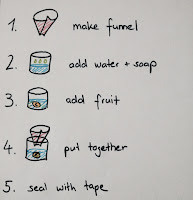 1. make funnel
2. add water + soap
3. add fruit
4. put together
5. seal with tape